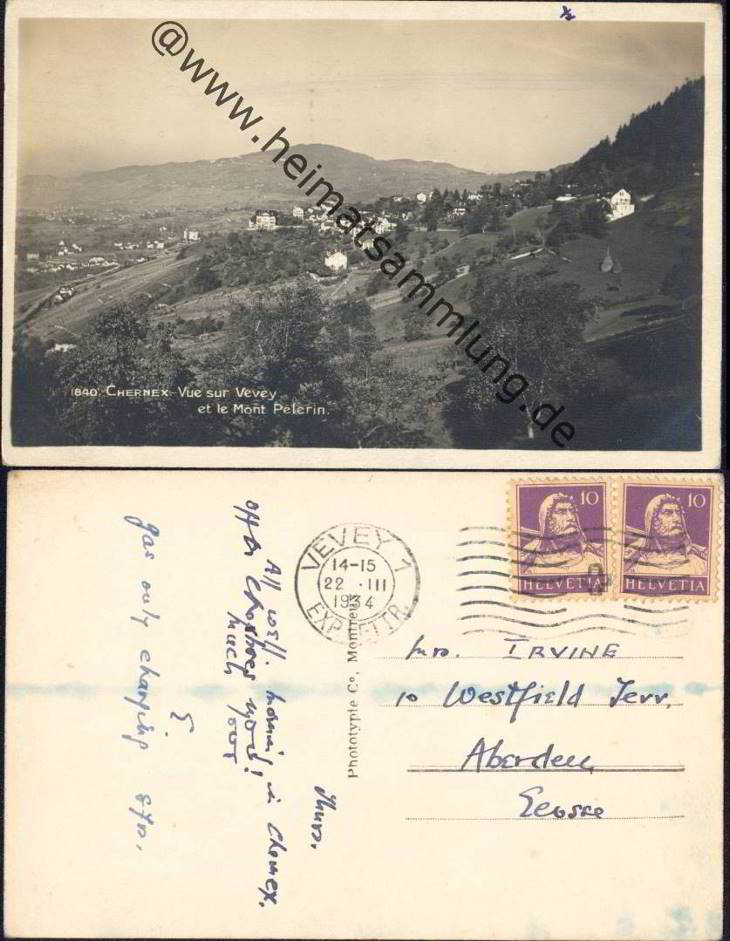 @www.heimatsammlung.de
1840. CHERNEX. Vue sur Vevey
et le Mont Pelerin.
VEVEY 1
14-15
22 . III
1934
EXP. LETTR.
10
HELVETIA
10
HELVETIA
Phototypie Co, Montreux
Mrs. IRVINE
10 Westfield Terr.
Aberdeen
Ecosse
Thurs.
All well. in Chernex.
off
much
gas only changing